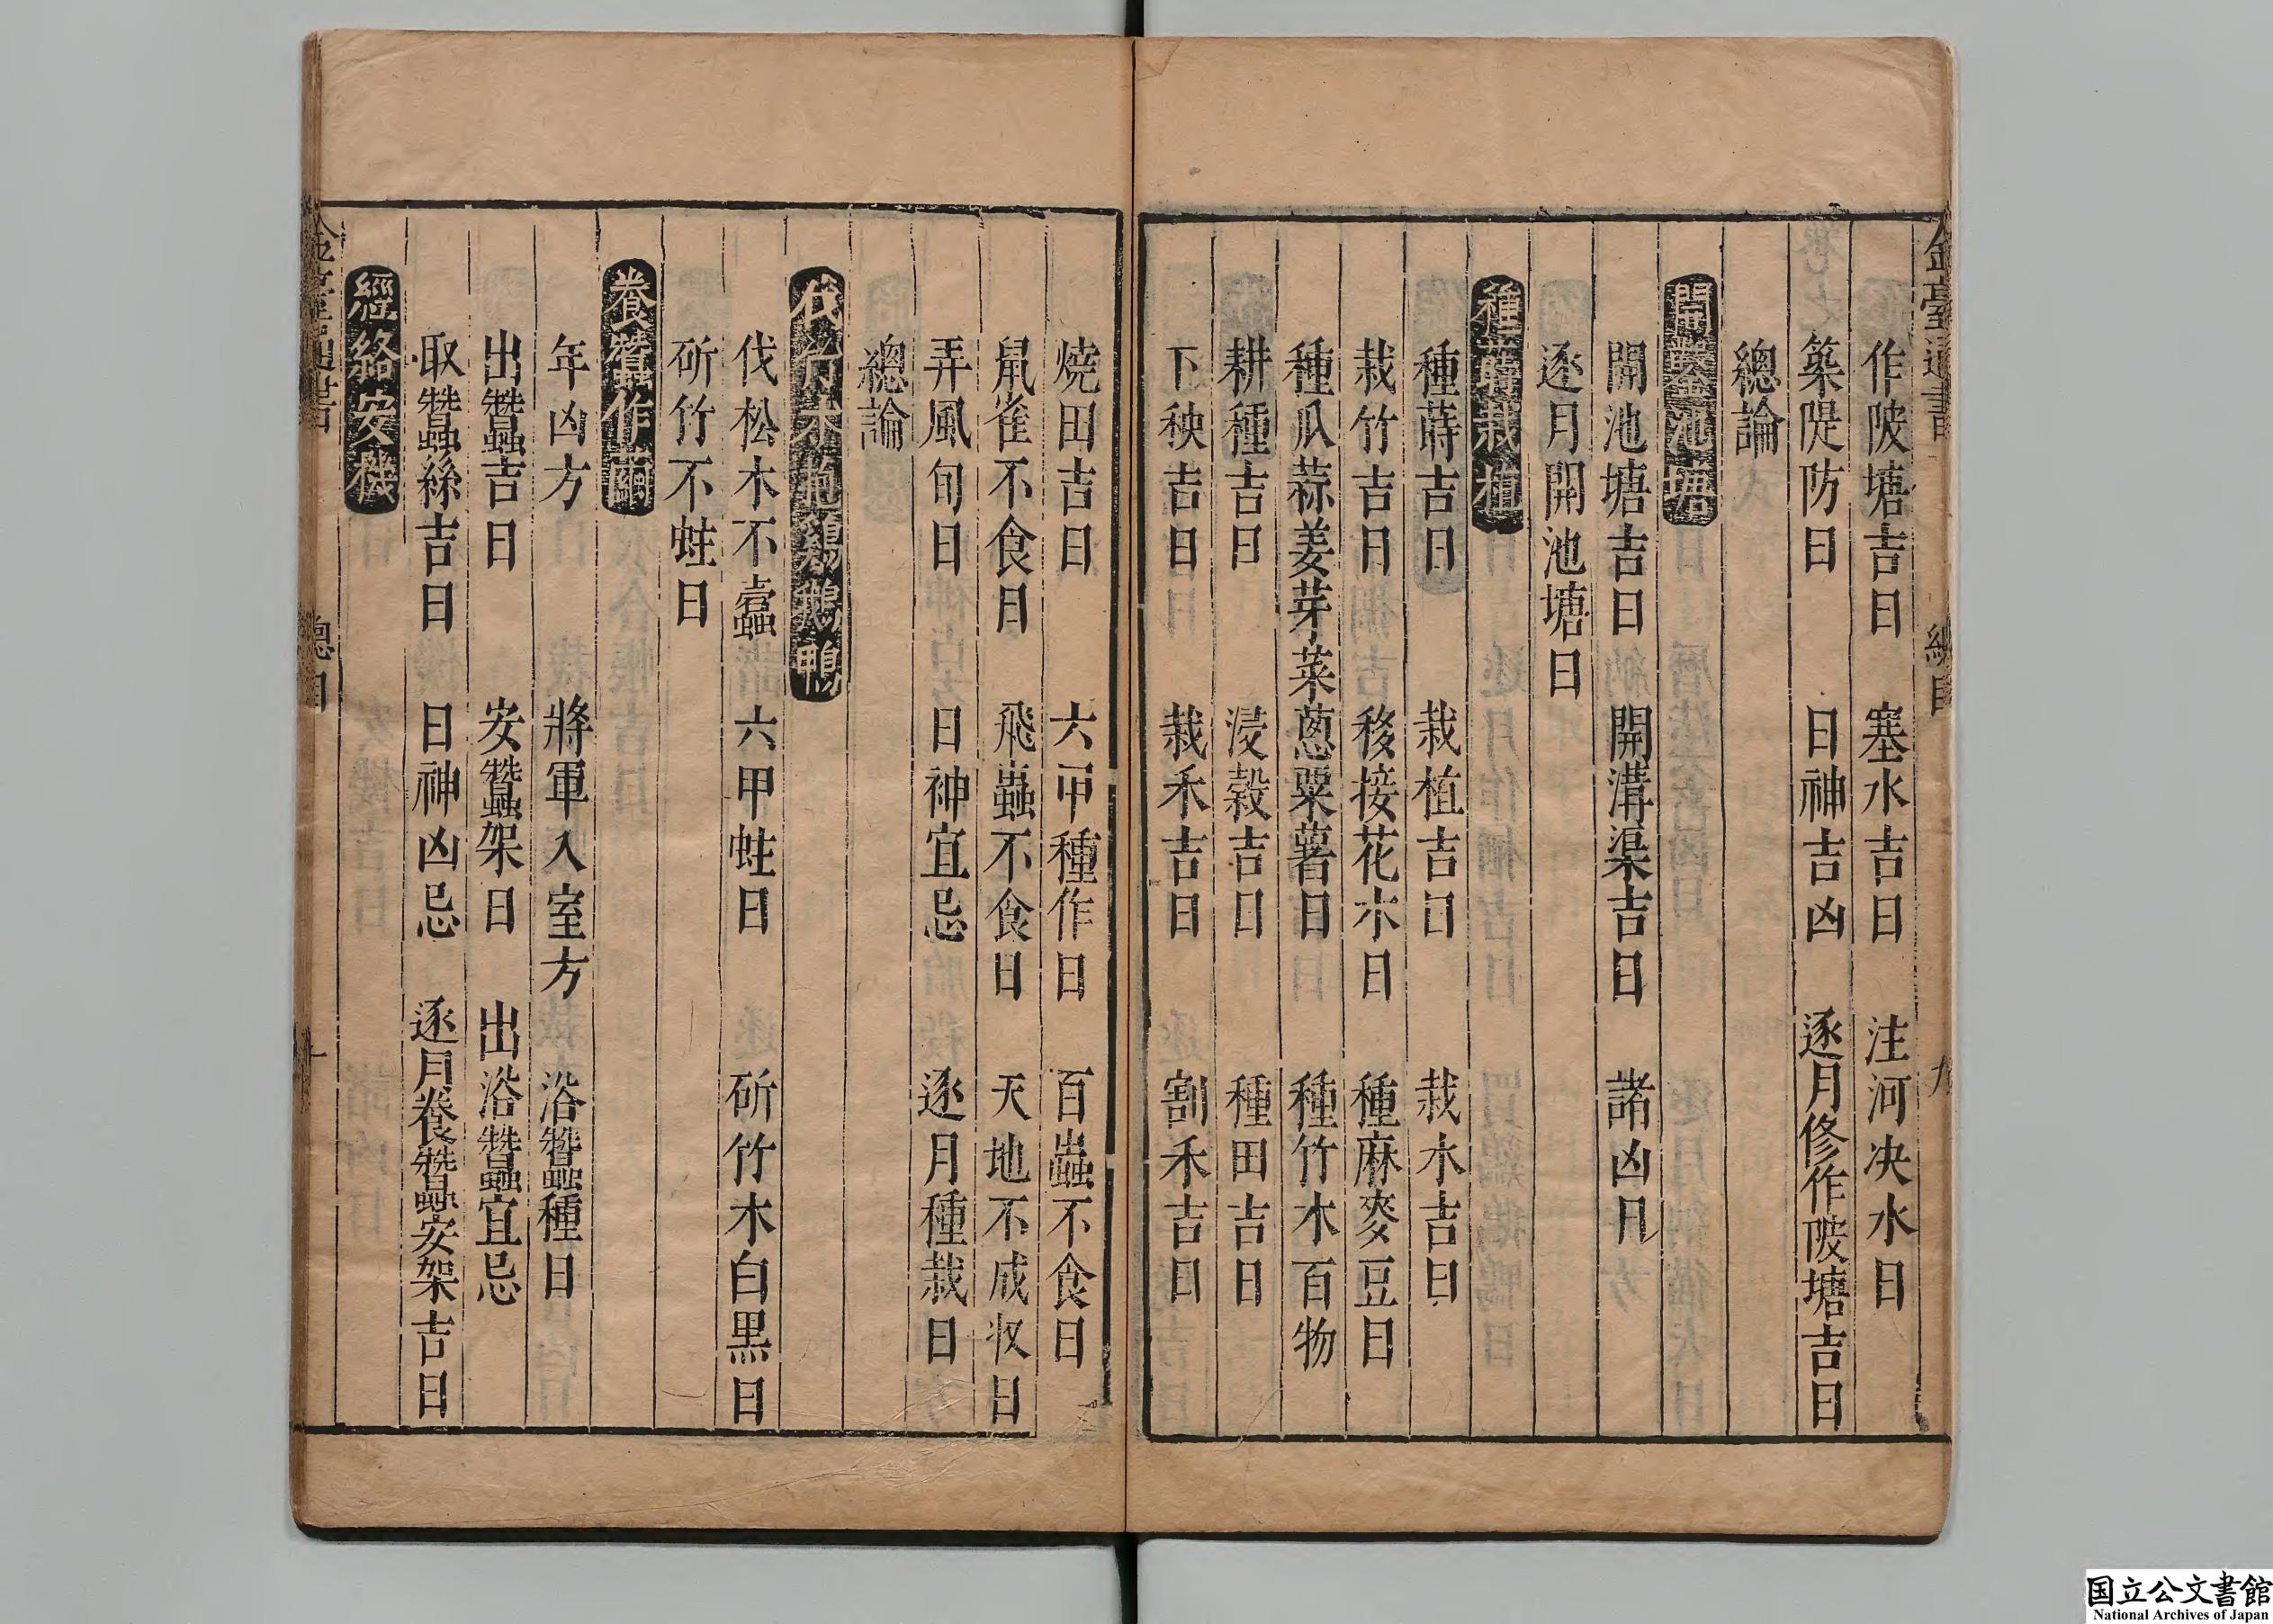 作陂塘吉日 塞水吉日 注河决水日
築隄防日 日神吉凶 逐月修作陂塘吉日
總論
開鑿池塘
開池塘吉日 開溝渠吉日 諸凶日
逐月開池塘日
種蒔栽植
種蒔吉日 栽植吉日 栽木吉日
栽竹吉日 移接花木日 種麻麥豆日
種瓜蒜姜芋菜蔥粟薯日 種竹木百物
耕種吉日 浸穀吉日 種田吉日
下秧吉日 栽禾吉日 割禾吉日
燒田吉日 六甲種作日 百蟲不食日
鼠雀不食日 飛蟲不食日 天地不成收日
弄風旬日 日神宜忌 逐月種栽日
總論
伐竹木抱鷄鵝鴨
伐松木不蠹 六甲蛀日 斫竹木白黑日
斫竹不蛀日
養蠶作繭
年凶方 將軍入室方 浴蠶種日
出蠶吉日 安蠶架日 出浴蠶宜忌
取蠶絲吉日 日神凶忌 逐月養蠶安架吉日
經絡安機
金臺通書 總目 九
總目
国立公文書館
National Archives of Japan